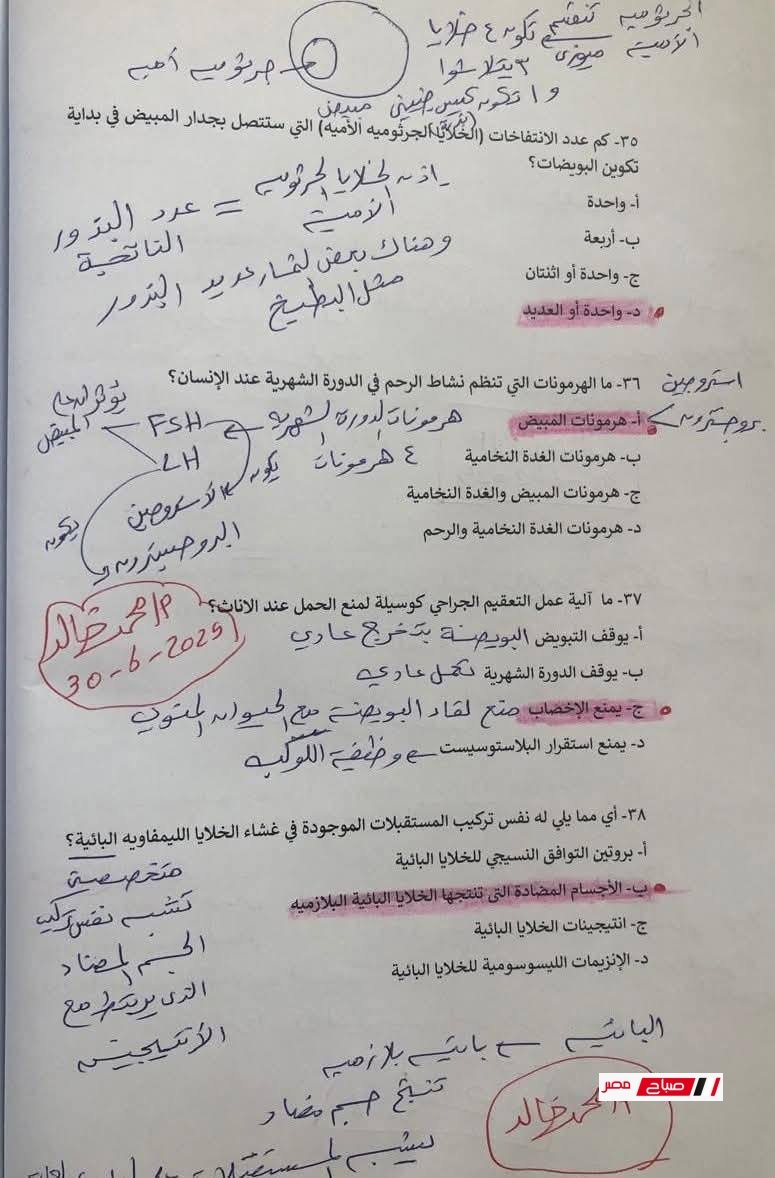 الجرثوميه تنقسم تكونه ٤ خلايا
الأمية ميوزى ٣ يتلاشوا
و ١ تكونه كيس جنينى مبيض
جرثوميه أميه
٣٥- كم عدد الانتفاخات (الخلايا الجرثوميه الأميه) التي ستتصل بجدار المبيض في بداية
تكوين البويضات؟
أ- واحدة
ب- أربعة
ج- واحدة أو اثنتان
د- واحدة أو العديد
الخلايا الجرثوميه
الأمية = عدد البذور
الناتجية
وهناك بعض الثمار عديد البذور
مثل البطيخ
٣٦- ما الهرمونات التي تنظم نشاط الرحم في الدورة الشهرية عند الإنسان؟
أ- هرمونات المبيض
ب- هرمونات الغدة النخامية
ج- هرمونات المبيض والغدة النخامية
د- هرمونات الغدة النخامية والرحم
استروجين
بروجسترونه
هرمونات الدورة الشهريه
٤ هرمونات
FSH
LH
يؤثر
المبيض
يكونه الاستروجين
يكونه
٣٧- ما آلية عمل التعقيم الجراحي كوسيلة لمنع الحمل عند الاناث؟
أ- يوقف التبويض البويضة بتخرج عادي
ب- يوقف الدورة الشهرية تكمل عادي
ج- يمنع الإخصاب منع لقاء البويضة مع الحيوان المنوي
د- يمنع استقرار البلاستوسيست وظيفة اللولب
م/محمد خالد
30-6-2025
٣٨- أي مما يلي له نفس تركيب المستقبلات الموجودة في غشاء الخلايا الليمفاويه البائية؟
أ- بروتين التوافق النسيجي للخلايا البائية
ب- الأجسام المضادة التى تنتجها الخلايا البائية البلازميه
ج- انتيجينات الخلايا البائية
د- الإنزيمات الليسوسومية للخلايا البائية
متخصصة
تشبه نفس تركيب
الجسم المضاد
الذى يرتبط مع
الأنتيجين
البائيه بائيه بلازميه
تنتج جسم مضاد
يشبه المستقبلات
م/محمد خالد
صباح مصر